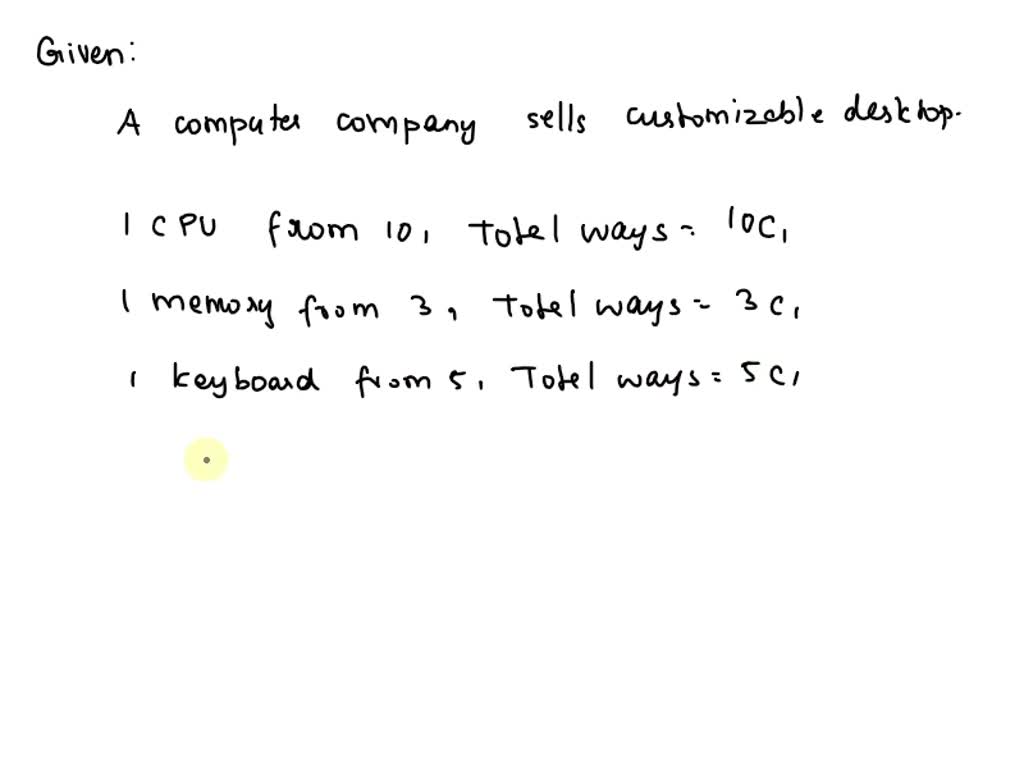 Given:
A computer company sells customizable desktop.
1 CPU from 10, Total ways = 10C1
1 memory from 3, Total ways = 3C1
1 keyboard from 5, Total ways = 5C1